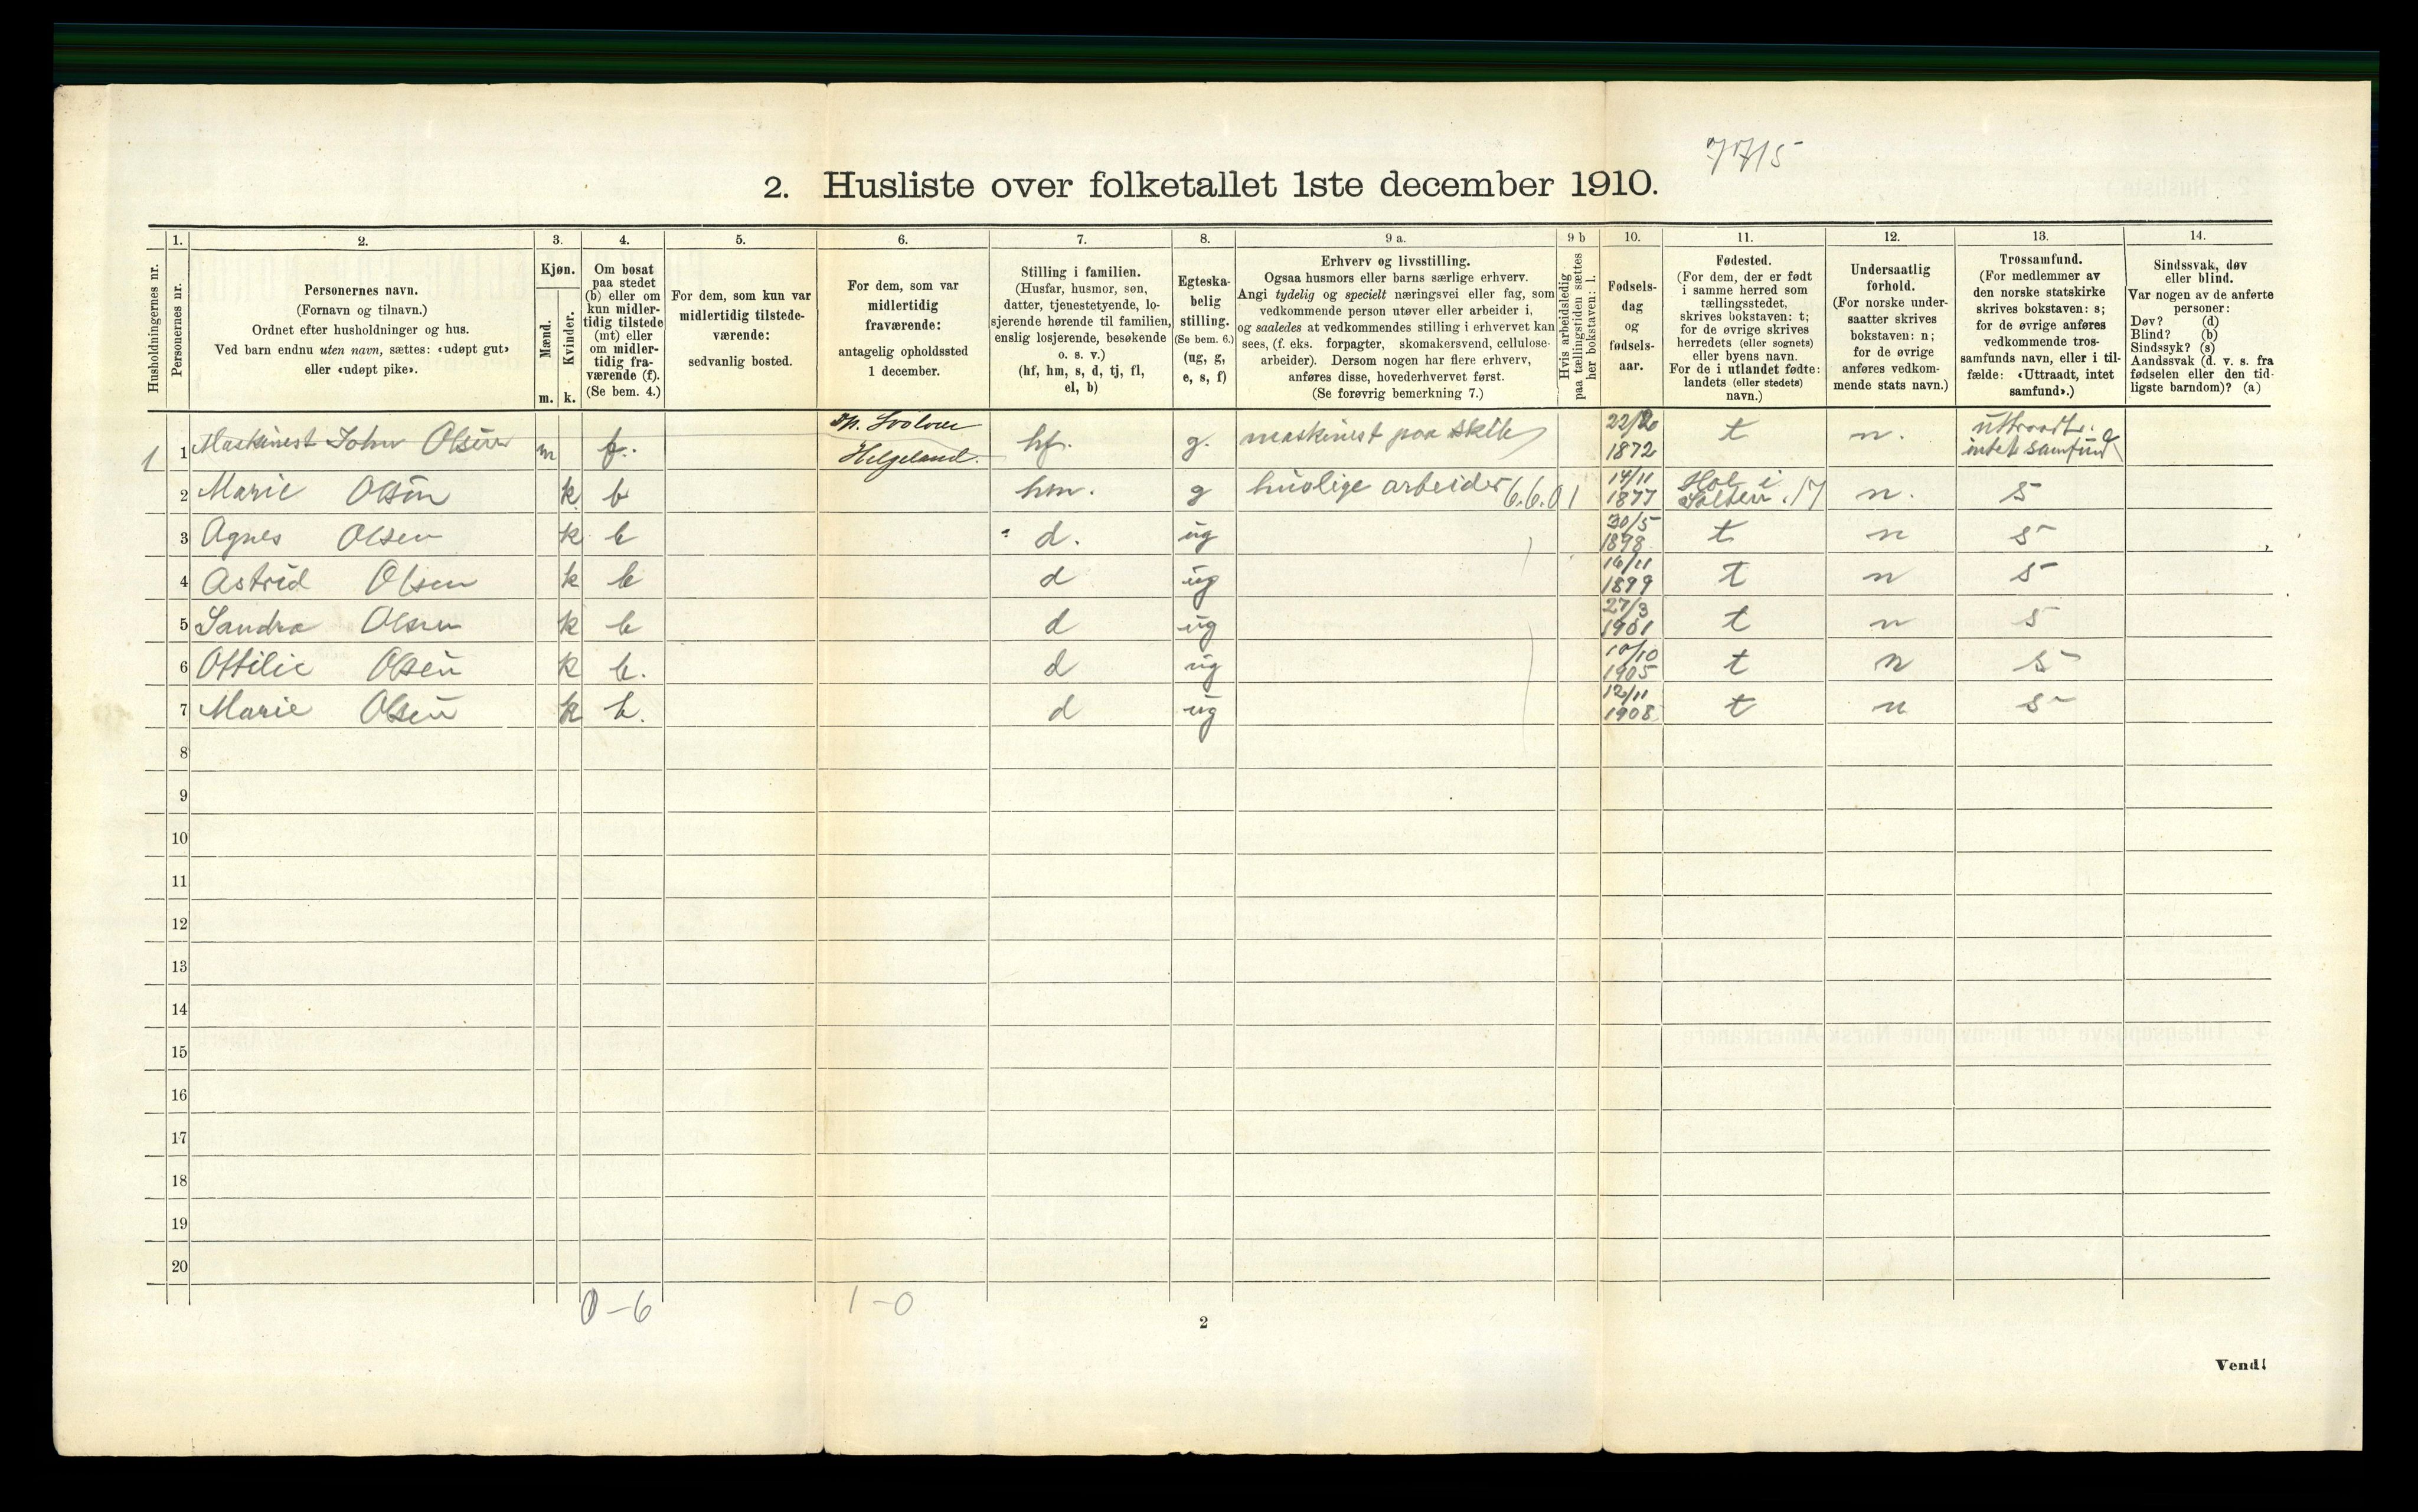 7715
2. Husliste over folketallet 1ste december 1910.
Husholdningernes nr.
1.
Personernes nr.
2.
Personernes navn.
(Fornavn og tilnavn.)
Ordnet efter husholdninger og hus.
Ved barn endnu uten navn, sættes: «udøpt gut»
eller «udøpt pike».
3.
Kjøn.
Mænd.
Kvinder.
m. k.
4.
Om bosat
paa stedet
(b) eller om
kun midler-
tidig tilstede
(mt) eller
om midler-
tidig fra-
værende (f).
(Se bem. 4.)
5.
For dem, som kun var
midlertidig tilstede-
værende:
sedvanlig bosted.
6.
For dem, som var
midlertidig
fraværende:
antagelig opholdssted
1 december.
7.
Stilling i familien.
(Husfar, husmor, søn,
datter, tjenestetyende, lo-
sjerende hørende til familien,
enslig losjerende, besøkende
o. s. v.)
(hf, hm, s, d, tj, fl,
el, b)
8.
Egteska-
belig
stilling.
(Se bem. 6.)
(ug, g,
e, s, f)
9 a.
Erhverv og livsstilling.
Ogsaa husmors eller barns særlige erhverv.
Angi tydelig og specielt næringsvei eller fag, som
vedkommende person utøver eller arbeider i,
og saaledes at vedkommendes stilling i erhvervet kan
sees, (f. eks. forpagter, skomakersvend, cellulose-
arbeider). Dersom nogen har flere erhverv,
anføres disse, hovederhvervet først.
(Se forøvrig bemerkning 7.)
9 b
Hvis arbeidsledig
paa tællingstiden sættes
her bokstaven: l.
10.
Fødsels-
dag
og
fødsels-
aar.
11.
Fødested.
(For dem, der er født
i samme herred som
tællingsstedet,
skrives bokstaven: t;
for de øvrige skrives
herredets (eller sognets)
eller byens navn.
For de i utlandet fødte:
landets (eller stedets)
navn.)
12.
Undersaatlig
forhold.
(For norske under-
saatter skrives
bokstaven: n;
for de øvrige
anføres vedkom-
mende stats navn.)
13.
Trossamfund.
(For medlemmer av
den norske statskirke
skrives bokstaven: s;
for de øvrige anføres
vedkommende tros-
samfunds navn, eller i til-
fælde: «Uttraadt, intet
samfund».)
14.
Sindssvak, døv
eller blind.
Var nogen av de anførte
personer:
Døv? (d)
Blind? (b)
Sindssyk? (s)
Aandssvak (d. v. s. fra
fødselen eller den tid-
ligste barndom)? (a)
1 1 Maskinest John Olsen m f. Svolvær Helgeland. hf. g. maskinest paa skib 22/2 1872 t n. uttraadt. intet samfund
2 Marie Olsen k b hm. g huslige arbeider 6.6.01 14/11 1877 Hol i Salten .17 n. s
3 Agnes Olsen k b d. ug 30/5 1898 t n s
4 Astrid Olsen k b d ug 16/11 1899 t n s
5 Sandra Olsen k b d ug 27/3 1901 t n s
6 Ottilie Olsen k b. d ug 10/10 1905 t n s
7 Marie Olsen k b. d ug 12/11 1908 t n s
8
9
10
11
12
13
14
15
16
17
18
19
20
0-6 1-0
2
Vend!